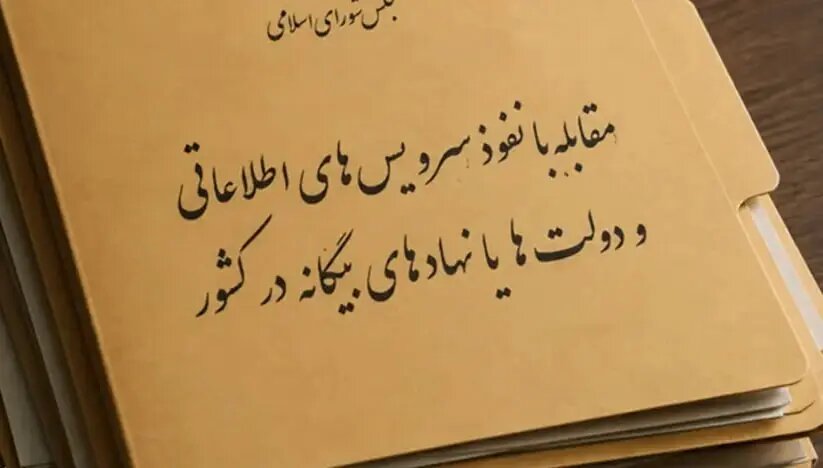 مجلس شورای اسلامی
مقابله با نفوذ سرویس های اطلاعاتی
و دولت ها یا نهادهای بیگانه در کشور